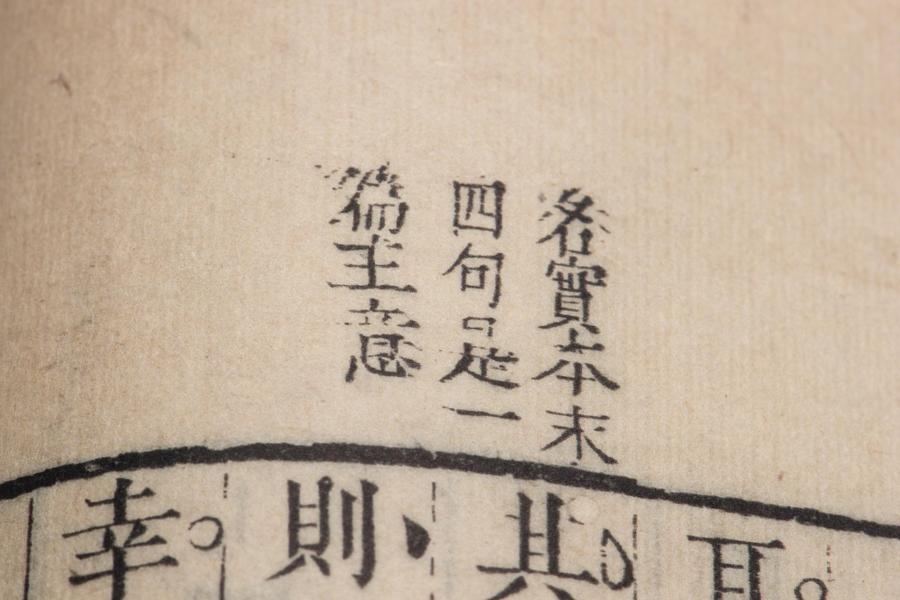 名實本末
四句是一
篇主意
耳
其
則
幸